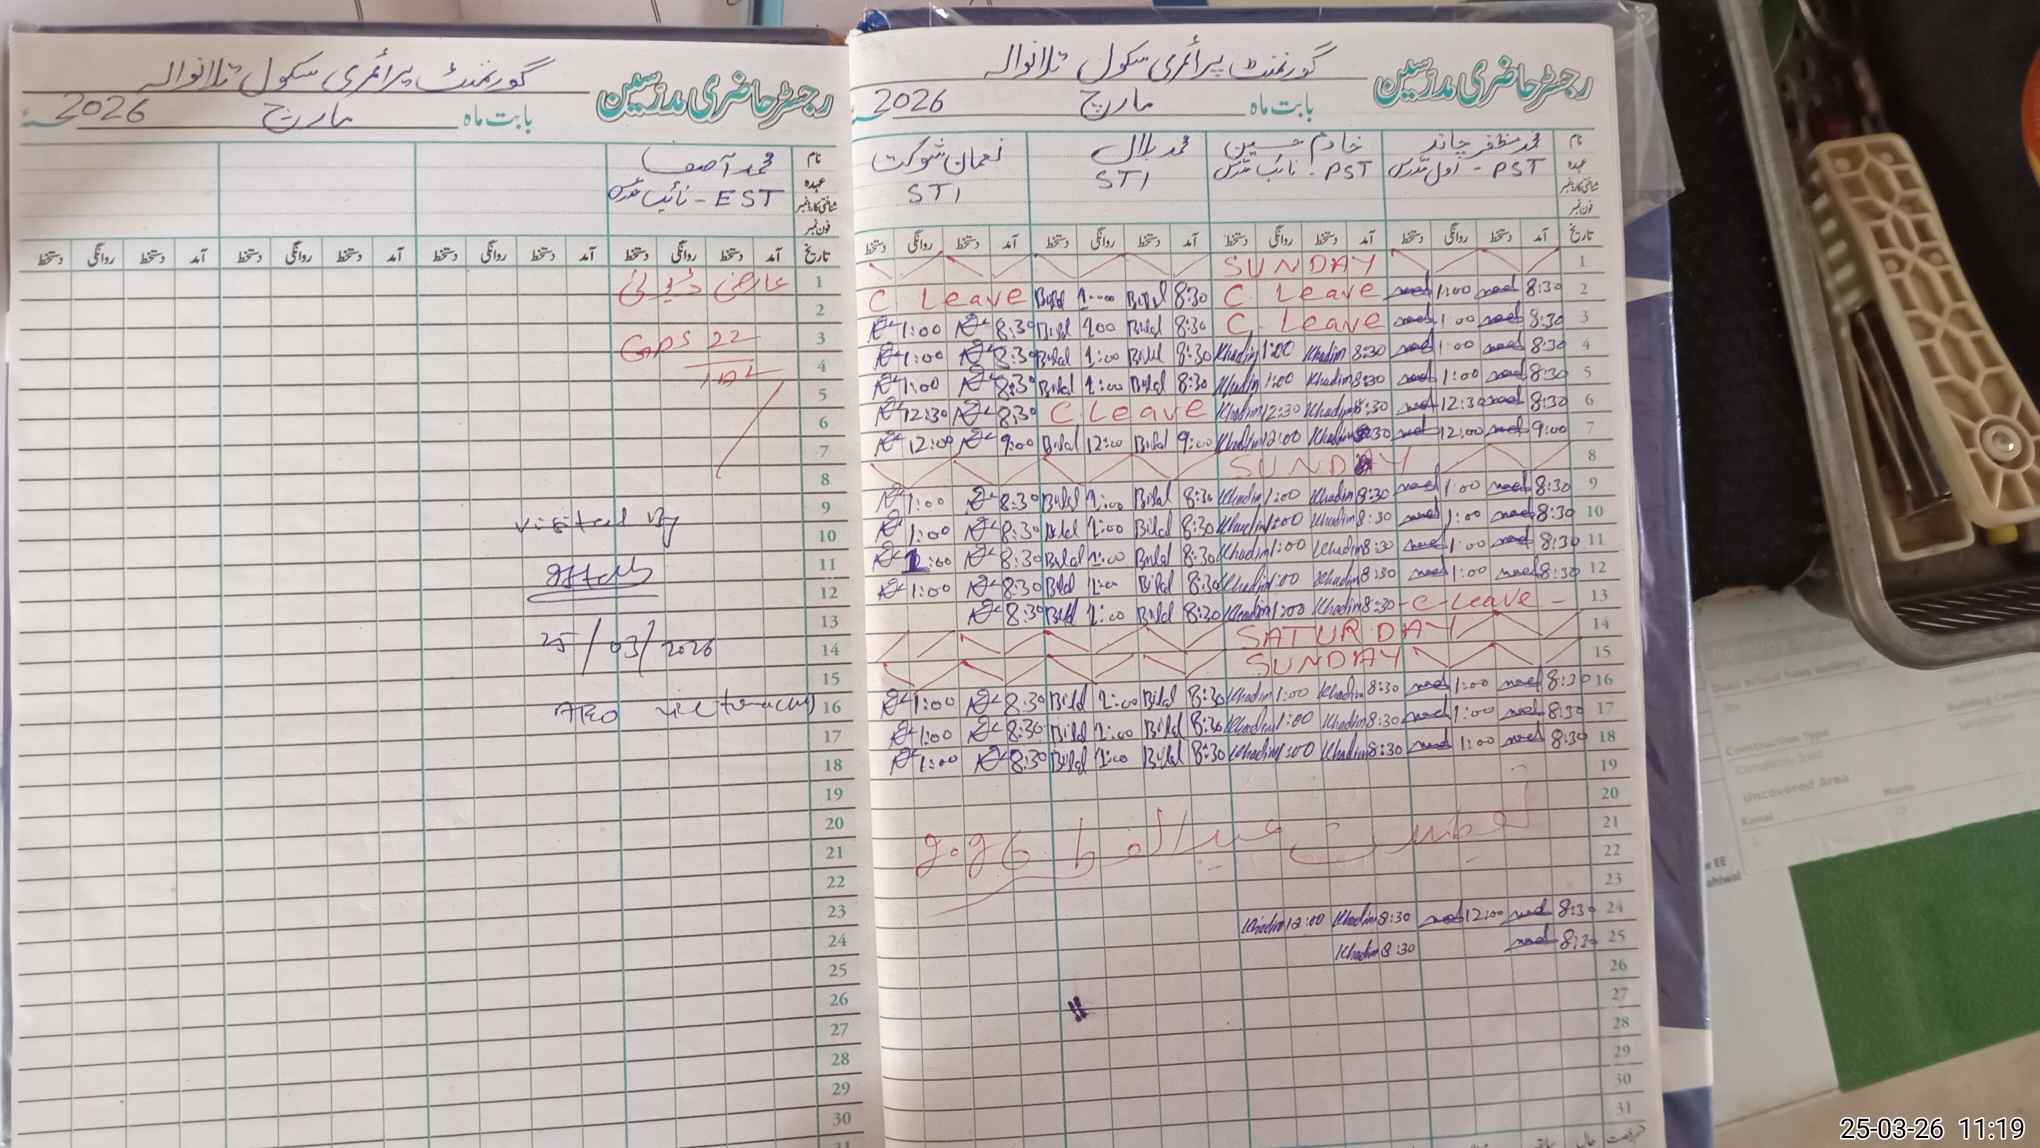 گورنمنٹ پرائمری سکول تلانوالہ
رجسٹر حاضری مدرّسین
بابت ماہ مارچ 2026
نام محمد آصف
عہدہ EST - نائب مدرس
شناختی کارڈ نمبر
فون نمبر
تاریخ آمد دستخط روانگی دستخط آمد دستخط روانگی دستخط آمد دستخط روانگی دستخط آمد دستخط روانگی دستخط
1 عارضی ڈیوٹی
2
3 GPS 22
4
5
6
7
8
9
visited By
10
11
12
25/03/2026
13
14
15
16 AEO
17
18
19
20
21
22
23
24
25
26
27
28
29
30
31
گورنمنٹ پرائمری سکول تلانوالہ
رجسٹر حاضری مدرّسین
بابت ماہ مارچ 2026
نام محمد مظفر چاند خادم حسین محمد بلال نعمان شوکت
عہدہ PST - اول مدرس PST - نائب مدرس STI STI
شناختی کارڈ نمبر
فون نمبر
تاریخ آمد دستخط روانگی دستخط آمد دستخط روانگی دستخط آمد دستخط روانگی دستخط آمد دستخط روانگی دستخط
SUNDAY 1
C Leave Bilal 1:00 Bilal 8:30 C Leave 1:00 8:30 2
1:00 8:30 Bilal 1:00 Bilal 8:30 C. Leave 1:00 8:30 3
1:00 8:30 Bilal 1:00 Bilal 8:30 Khadim 1:00 Khadim 8:30 1:00 8:30 4
1:00 8:30 Bilal 1:00 Bilal 8:30 Khadim 1:00 Khadim 8:30 1:00 8:30 5
12:30 8:30 C Leave Khadim 12:30 Khadim 8:30 12:30 8:30 6
12:00 9:00 Bilal 12:00 Bilal 9:00 Khadim 12:00 Khadim 8:30 12:00 9:00 7
SUNDAY 8
1:00 8:30 Bilal 1:00 Bilal 8:30 Khadim 1:00 Khadim 8:30 1:00 8:30 9
1:00 8:30 Bilal 1:00 Bilal 8:30 Khadim 1:00 Khadim 8:30 1:00 8:30 10
1:00 8:30 Bilal 1:00 Bilal 8:30 Khadim 1:00 Khadim 8:30 1:00 8:30 11
1:00 8:30 Bilal 1:00 Bilal 8:30 Khadim 1:00 Khadim 8:30 1:00 8:30 12
8:30 Bilal 1:00 Bilal 8:30 Khadim 1:00 Khadim 8:30 - C - Leave - 13
SATURDAY 14
SUNDAY 15
1:00 8:30 Bilal 1:00 Bilal 8:30 Khadim 1:00 Khadim 8:30 1:00 8:30 16
1:00 8:30 Bilal 1:00 Bilal 8:30 Khadim 1:00 Khadim 8:30 1:00 8:30 17
1:00 8:30 Bilal 1:00 Bilal 8:30 Khadim 1:00 Khadim 8:30 1:00 8:30 18
19
20
تعطیلات عید الفطر 2026
21
22
23
Khadim 12:00 Khadim 8:30 12:00 8:30 24
Khadim 8:30 8:30 25
26
27
28
29
30
31
Construction Type
Uncovered Area
Kanal
Marla
25-03-26 11:19